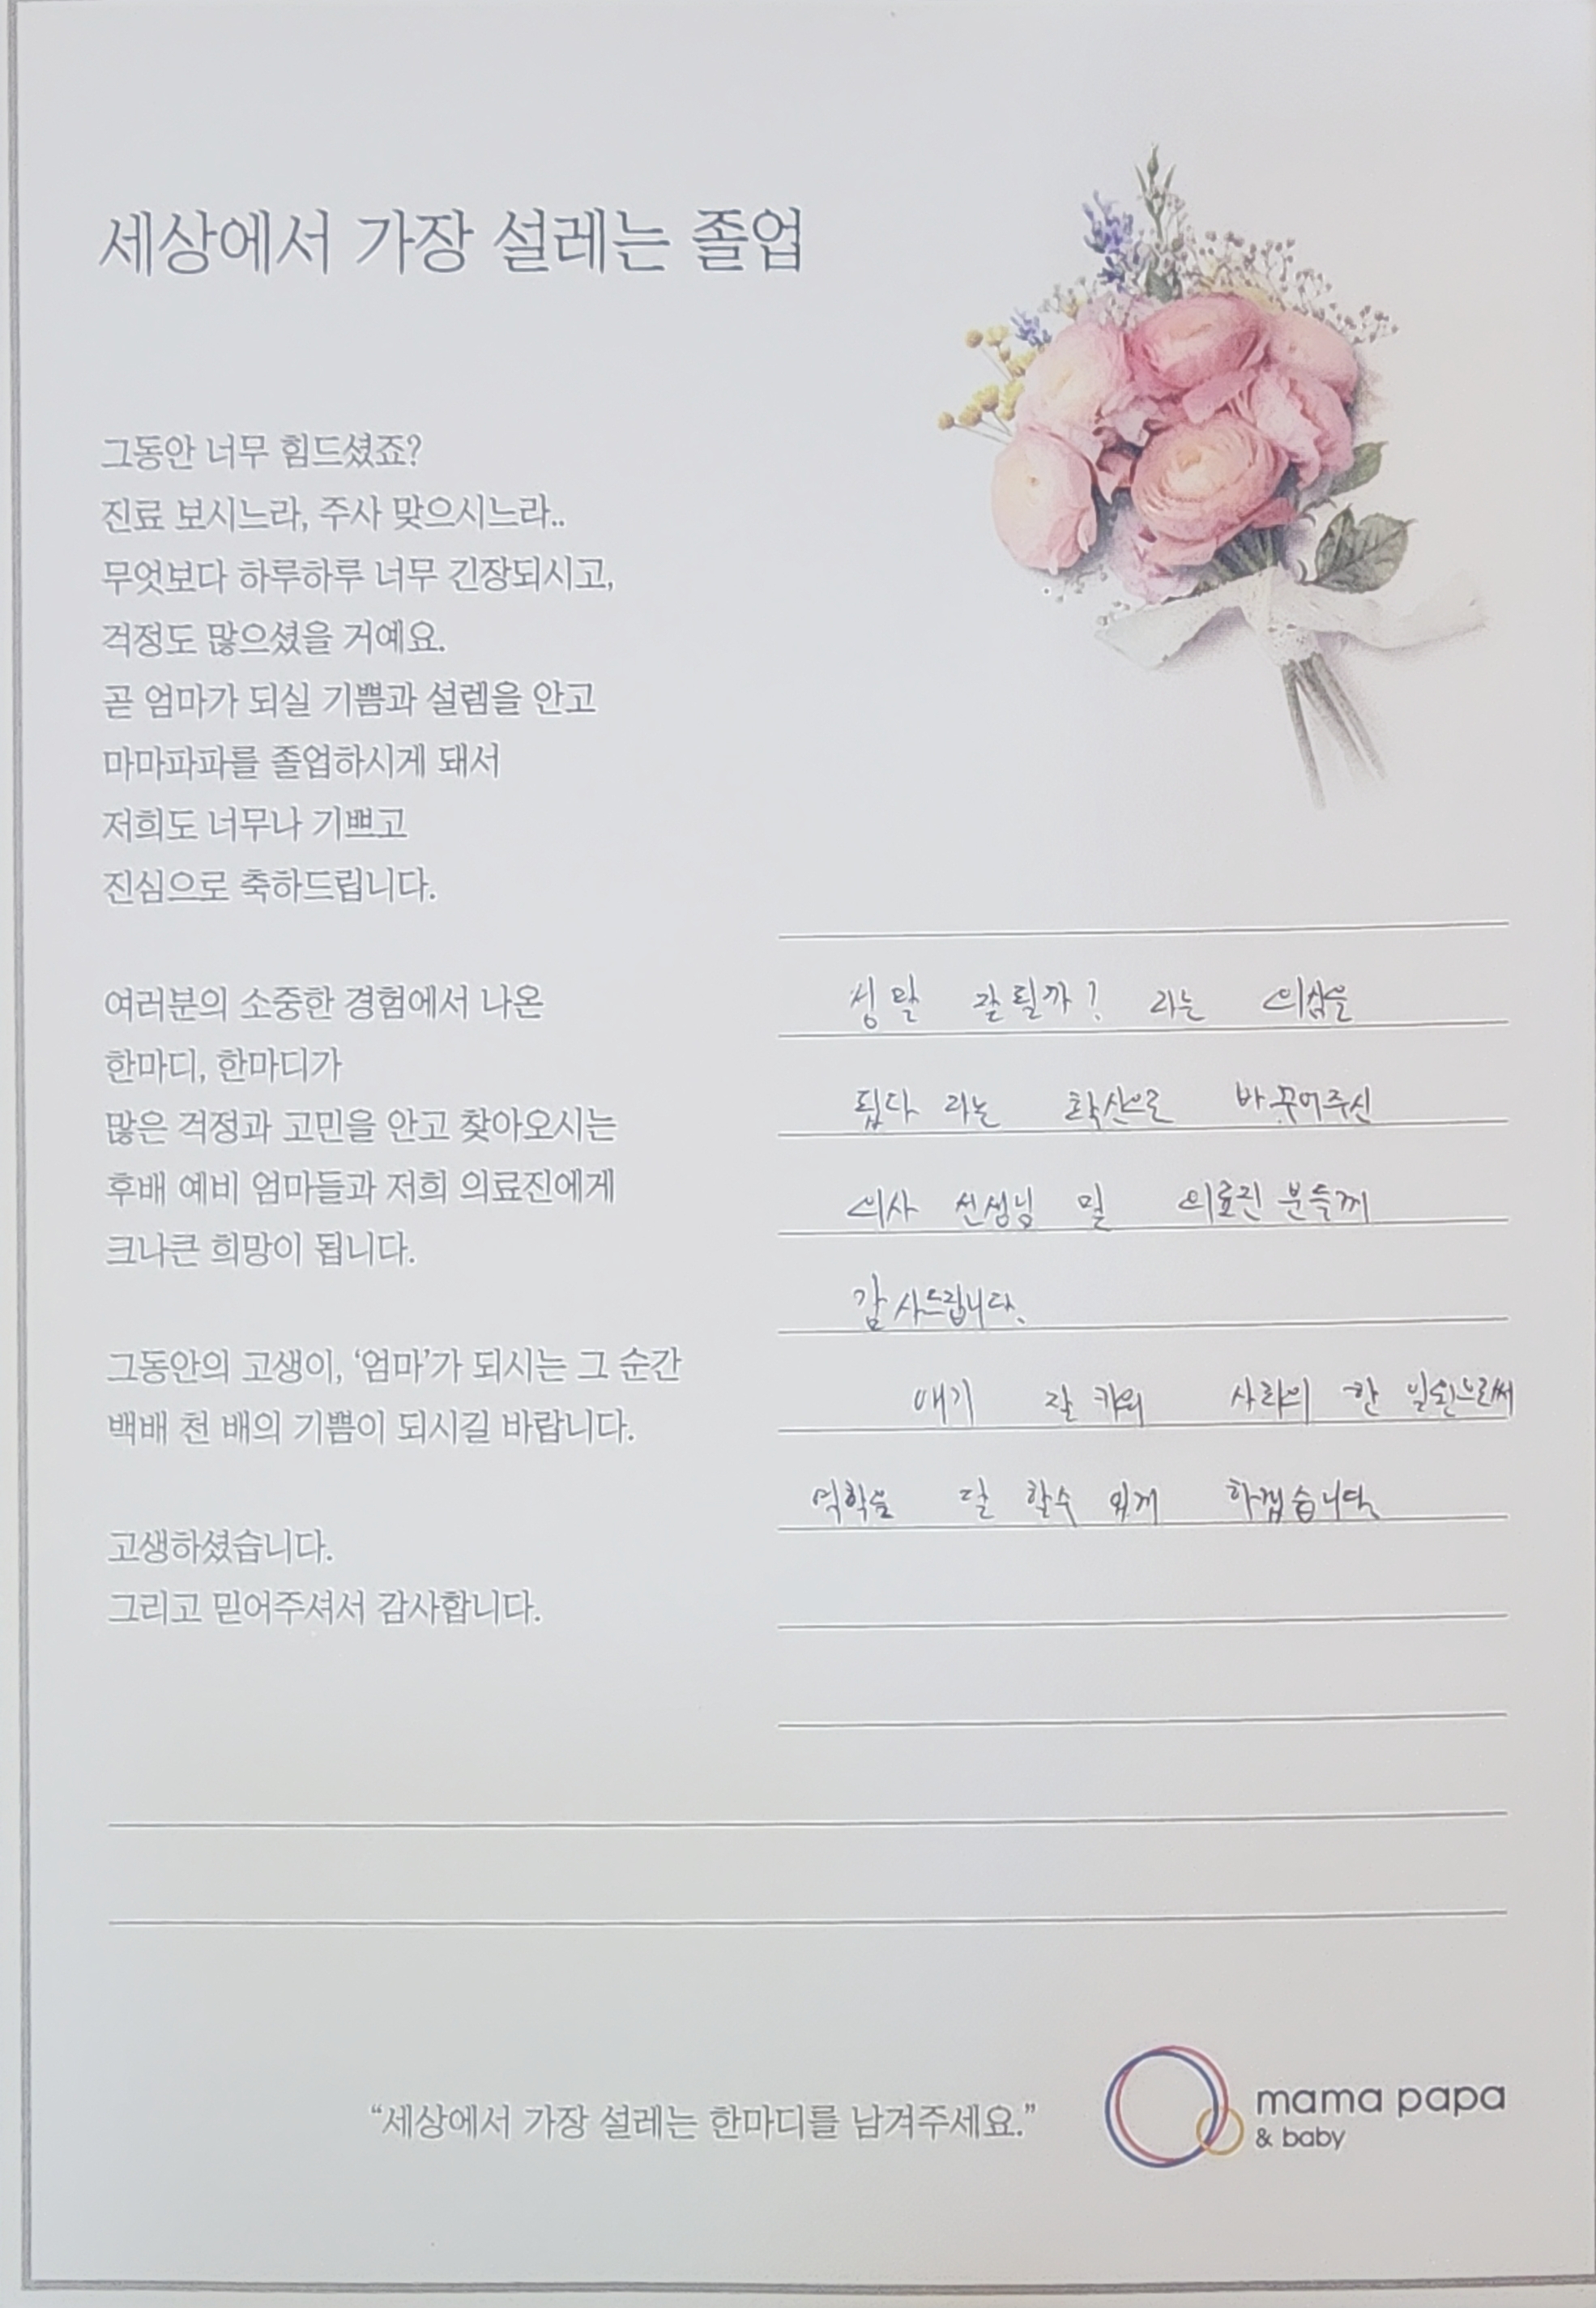 세상에서 가장 설레는 졸업
그동안 너무 힘드셨죠?
진료 보시느라, 주사 맞으시느라..
무엇보다 하루하루 너무 긴장되시고,
걱정도 많으셨을 거예요.
곧 엄마가 되실 기쁨과 설렘을 안고
마마파파를 졸업하시게 돼서
저희도 너무나 기쁘고
진심으로 축하드립니다.
여러분의 소중한 경험에서 나온
한마디, 한마디가
많은 걱정과 고민을 안고 찾아오시는
후배 예비 엄마들과 저희 의료진에게
크나큰 희망이 됩니다.
그동안의 고생이, ‘엄마’가 되시는 그 순간
백배 천 배의 기쁨이 되시길 바랍니다.
고생하셨습니다.
그리고 믿어주셔서 감사합니다.
잘될까? 라는 의심을
된다 라는 확신으로 바꾸어주신
의사 선생님 및 의료진 분들께
감사드립니다.
애기 잘 키워 사회의 한 일원으로써
역할을 잘 할수 있게 하겠습니다.
“세상에서 가장 설레는 한마디를 남겨주세요.”
mama papa
& baby